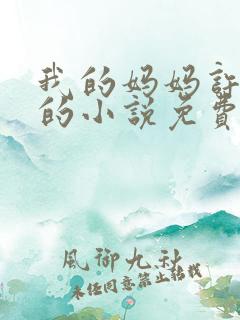 我的妈妈許
的小説免費
風御九秋
未经同意禁止转载